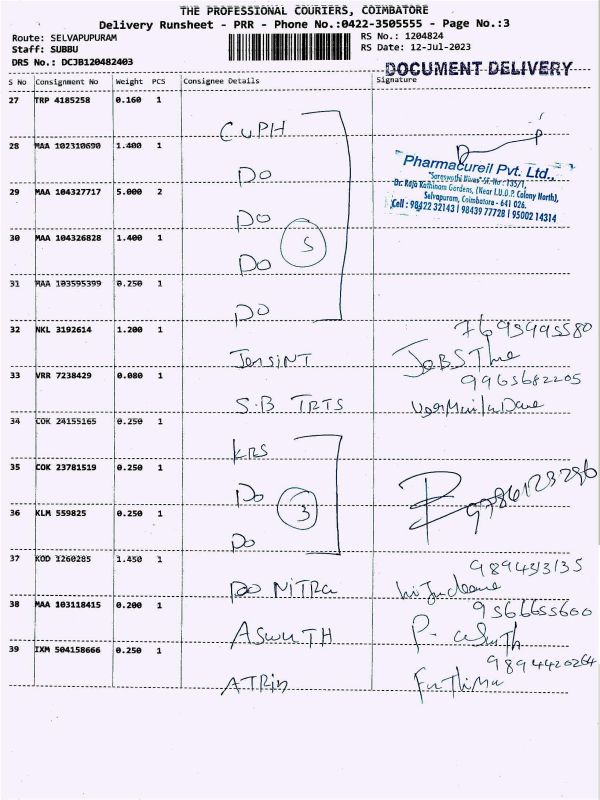 THE PROFESSIONAL COURIERS, COIMBATORE
Delivery Runsheet - PRR - Phone No.:0422-3505555 - Page No.:3
Route: SELVAPUPURAM
RS No.: 1204824
Staff: SUBBU
RS Date: 12-Jul-2023
DRS No.: DCJB120482403
DOCUMENT DELIVERY
S No Consignment No Weight PCS Consignee Details Signature
27 TRP 4185258 0.160 1
CUPH
28 MAA 102310690 1.400 1
DO
Pharmacureil Pvt. Ltd.,
"Saraswathi Nivas" Sf. No : 135/1,
Dr. Raja Rathinam Gardens, (Near L.U.D.P. Colony North),
Selvapuram, Coimbatore - 641 026.
Cell : 98422 32143 | 98439 77728 | 95002 14314
29 MAA 104327717 5.000 2
DO
5
30 MAA 104326828 1.400 1
DO
31 MAA 103595399 0.250 1
DO
32 NKL 3192614 1.200 1
7695495580
33 VRR 7238429 0.080 1
9965682205
S.B TRTS
34 COK 24155165 0.250 1
KRS
35 COK 23781519 0.250 1
DO
3
9786123286
36 KLM 559825 0.250 1
DO
37 KOD 1260285 1.450 1
DO NITRA
38 MAA 103118415 0.200 1
9566655600
ASWUTH
39 IXM 504158666 0.250 1
9894420264
ATRIN